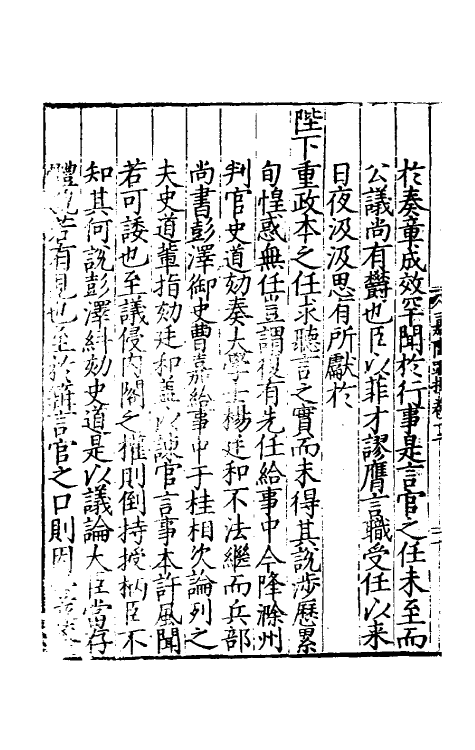 於奏章成效罕聞於行事是言官之任未至而
公議尚有欝也臣以菲才謬膺言職受任以来
日夜汲汲思有所獻於
陛下重政本之任求聽言之實而未得其說涉歷累
旬惶惑無任豈謂復有先任給事中今降滁州
判官史道劾奏大學士楊廷和不法繼而兵部
尚書彭澤御史曹嘉給事中于桂相次論列之
夫史道輩指劾廷和盖以諫官言事本許風聞
若可諉也至議侵內閣之權則倒持授柄臣不
知其何說彭澤糾劾史道是以議論大臣當存
體說若有見也至於摧言官之口則因